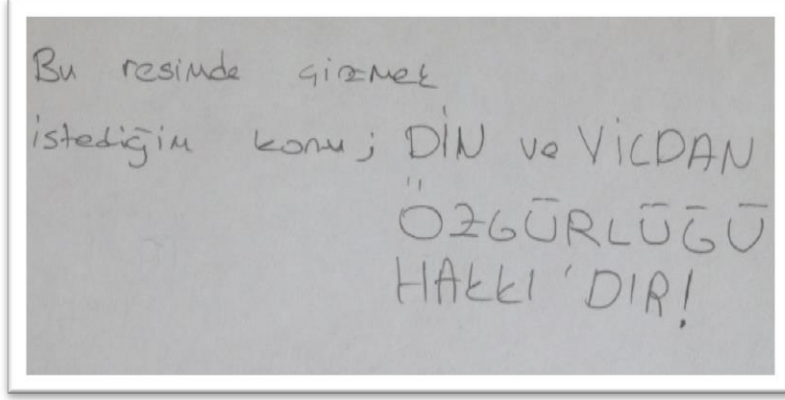 Bu resimde çizmek
istediğim konu; DİN ve VİCDAN
ÖZGÜRLÜĞÜ
HAKKI'DIR!